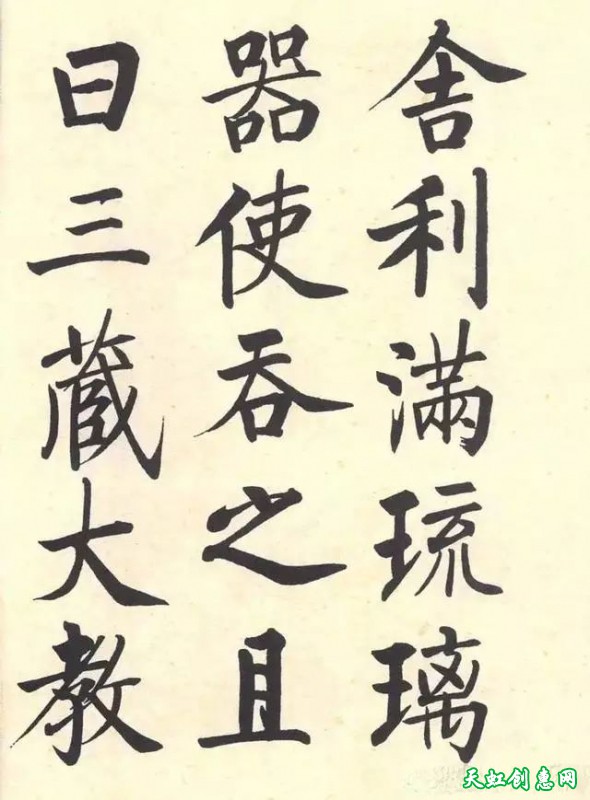 舍利滿琉璃
器使吞之且
曰三藏大教
天虹创惠网